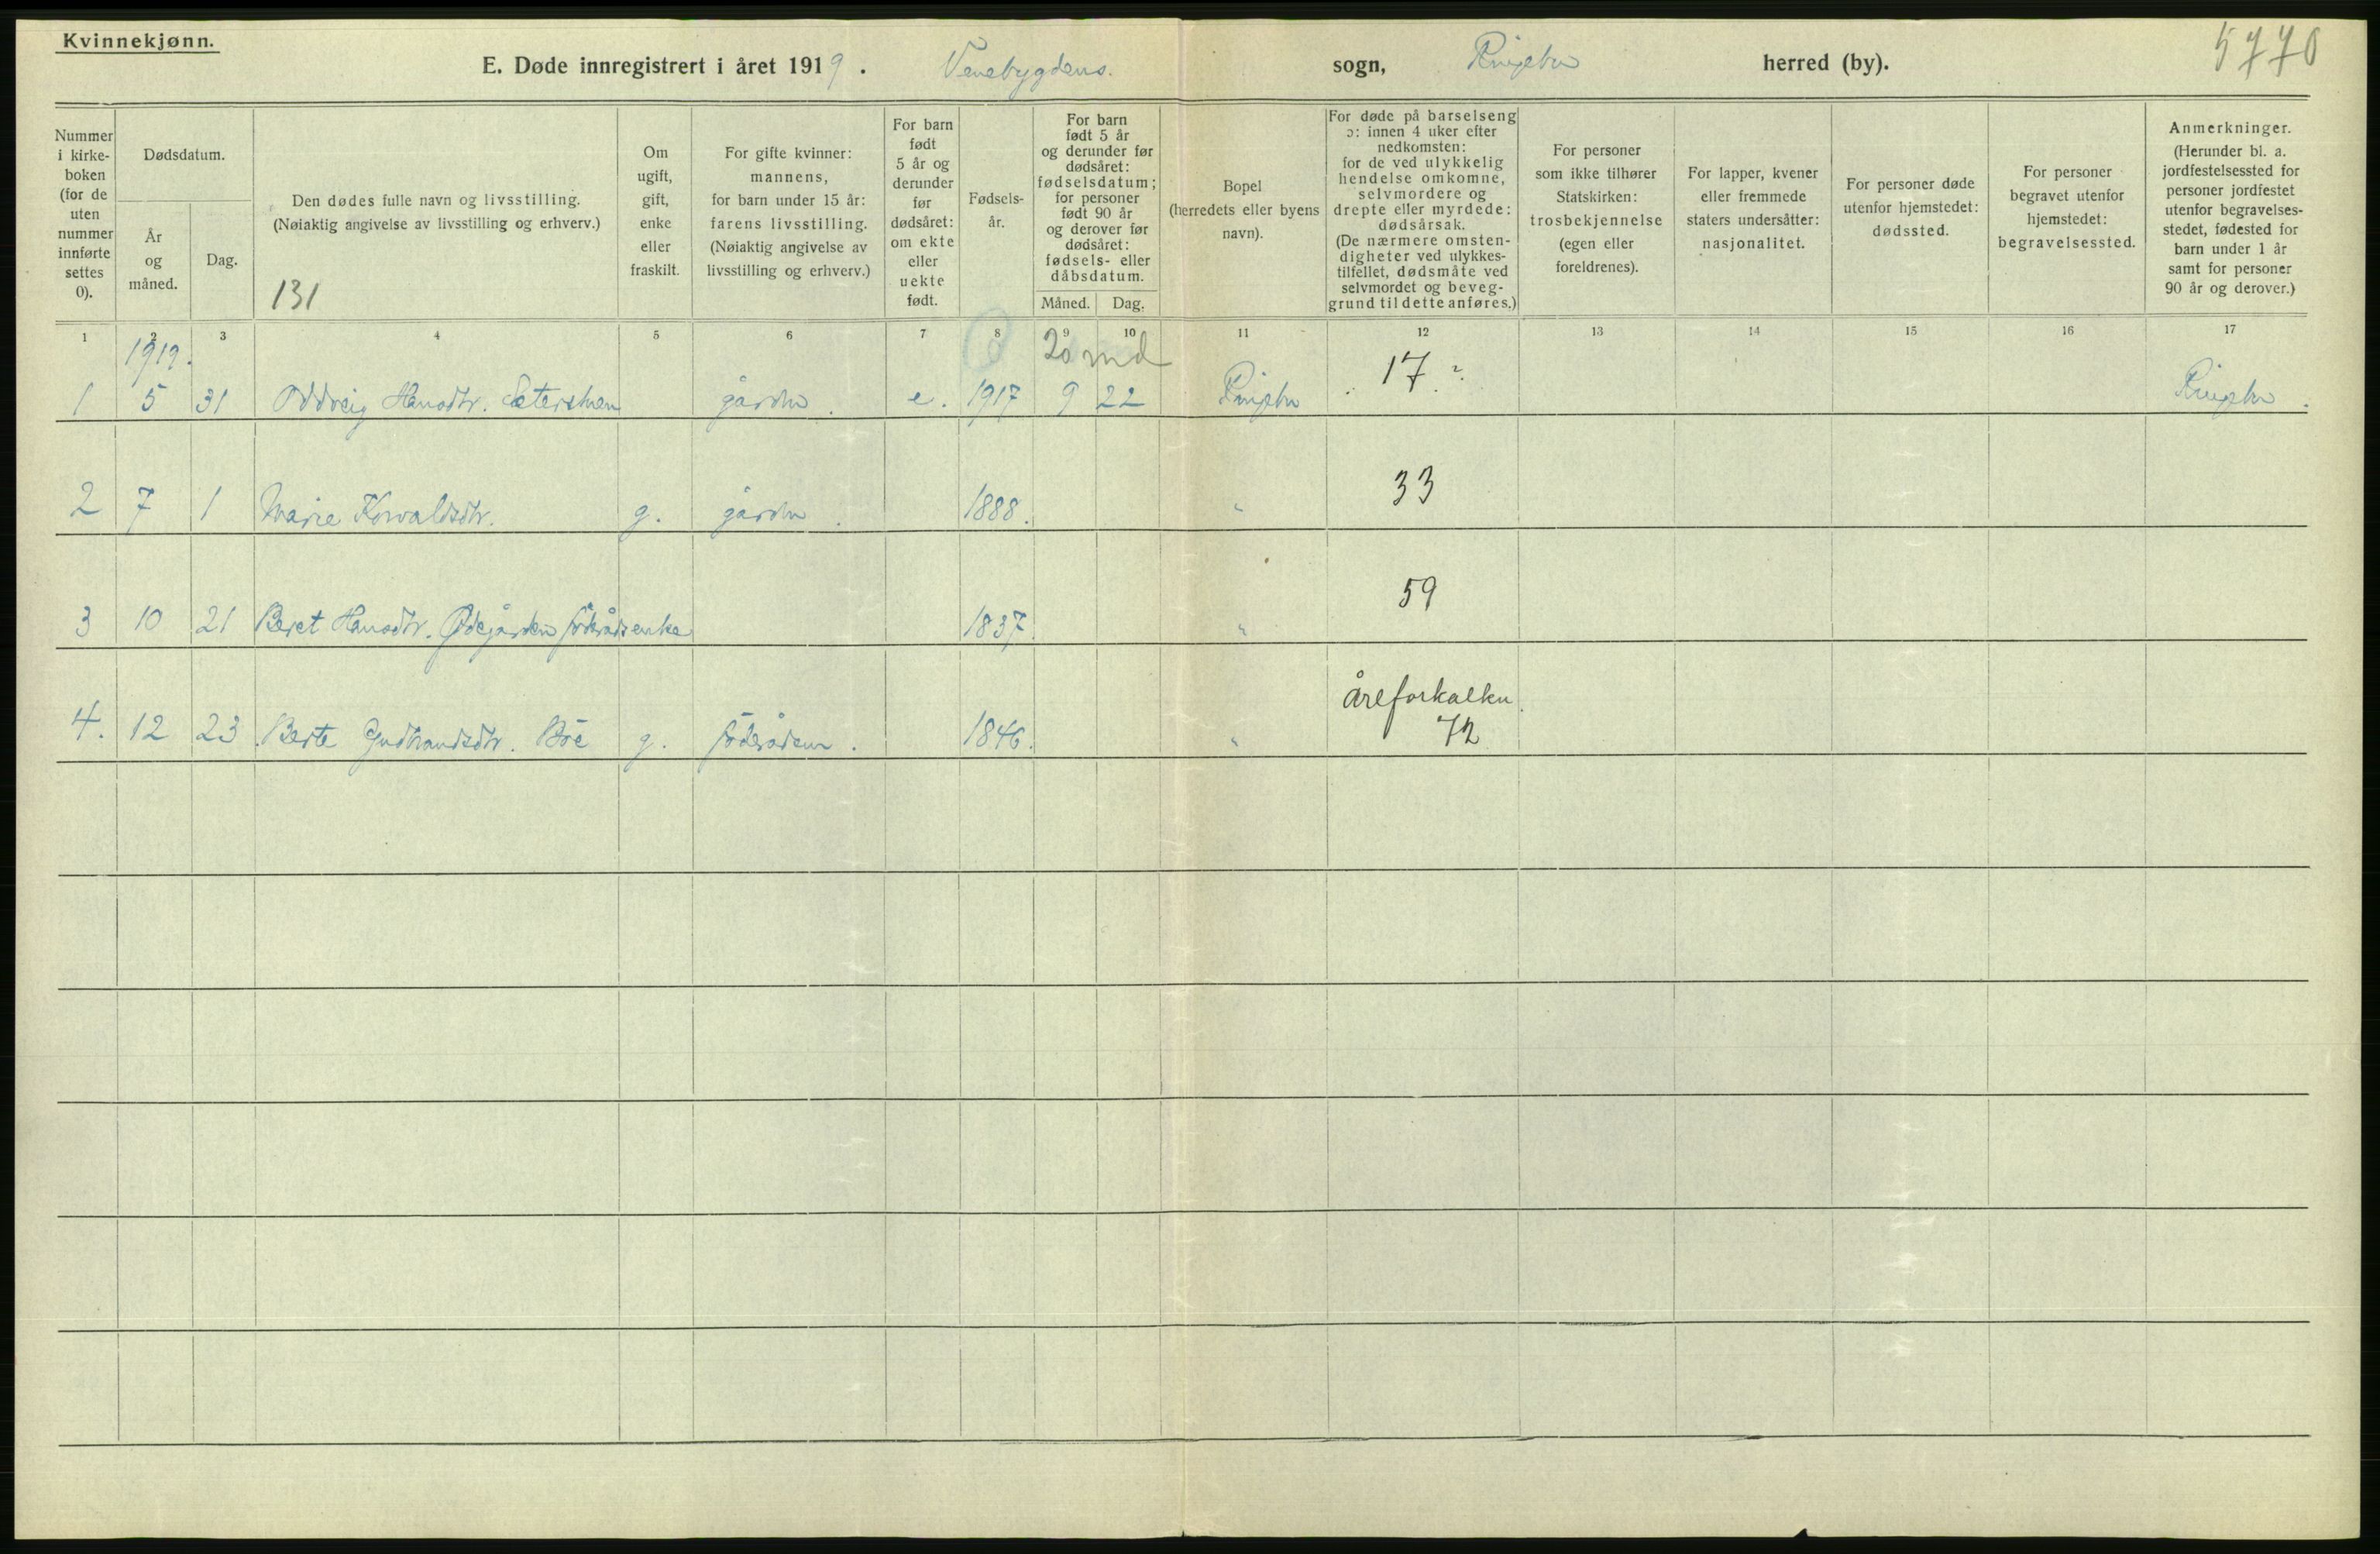 Kvinnekjønn.
E. Døde innregistrert i året 1919. Venebygdens. sogn, Ringebu herred (by).
5770
Nummer i kirke-boken (for de uten nummer innførte settes 0).
Dødsdatum.
År og måned.
Dag.
Den dødes fulle navn og livsstilling.
(Nøiaktig angivelse av livsstilling og erhverv.)
131
Om ugift, gift, enke eller fraskilt.
For gifte kvinner: mannens, for barn under 15 år: farens livsstilling. (Nøiaktig angivelse av livsstilling og erhverv.)
For barn født 5 år og derunder før dødsåret: om ekte eller uekte født.
Fødsels-år.
For barn født 5 år og derunder før dødsåret: fødselsdatum; for personer født 90 år og derover før dødsåret: fødsels- eller dåbsdatum.
Måned. Dag.
Bopel (herredets eller byens navn).
For døde på barselseng ɔ: innen 4 uker efter nedkomsten: for de ved ulykkelig hendelse omkomne, selvmordere og drepte eller myrdede: dødsårsak. (De nærmere omsten-digheter ved ulykkes-tilfellet, dødsmåte ved selvmordet og beveg-grund til dette anføres.)
For personer som ikke tilhører Statskirken: trosbekjennelse (egen eller foreldrenes).
For lapper, kvener eller fremmede staters undersåtter: nasjonalitet.
For personer døde utenfor hjemstedet: dødssted.
For personer begravet utenfor hjemstedet: begravelsessted.
Anmerkninger. (Herunder bl. a. jordfestelsessted for personer jordfestet utenfor begravelses-stedet, fødested for barn under 1 år samt for personer 90 år og derover.)
1 2 3 4 5 6 7 8 9 10 11 12 13 14 15 16 17
1919. 20 md
1 5 31 Oddveig Hansdtr. gårdbr. e. 1917 9 22 Ringebu 17? Ringebu.
2 7 1 Marie g. gårdbr. 1888. " 33
3 10 21 Beret Hansdtr. Ødegården føderådsenke 1837. " 59
åreforkalkn.
4. 12 23 Berte Gudbrandsdtr. Böe g. föderådsm. 1846. " 72